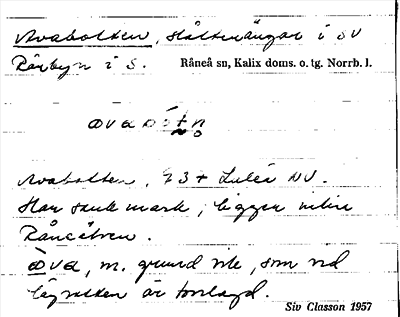 Avabolten, slåtterängar i SV
Rånbyn i S. Råneå sn, Kalix doms. o. tg. Norrb. l.
Avabolten, 73+ Luleå NV.
Har sank mark, ligger intill
Råneälven.
ava, m. grund vik, som vid
lågvatten är torrlagd.
Siv Classon 1957